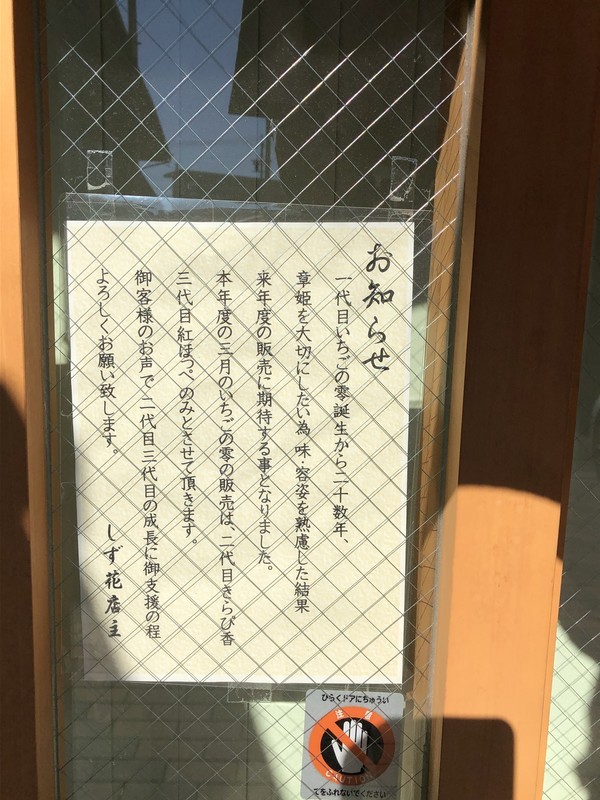 お知らせ
一代目いちごの零誕生から二十数年、
章姫を大切にしたい為 味・容姿を熟慮した結果
来年度の販売に期待する事となりました。
本年度の三月のいちごの零の販売は、二代目きらぴ香
三代目紅ほっぺのみとさせて頂きます。
御客様のお声で 二代目三代目の成長に御支援の程
よろしくお願い致します。
しず花店主
ひらくドアにちゅうい
注意
CAUTION
てをふれないでください